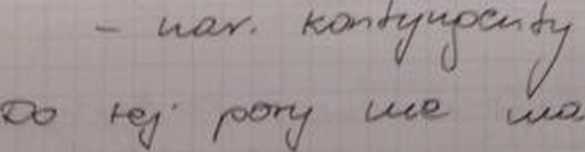 - nar. kontyngenty
Do tej pory nie ma